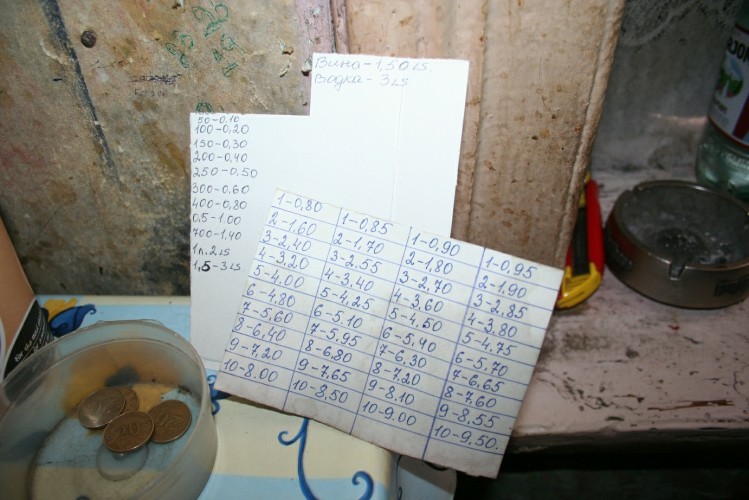 Вина-1,50 Ls.
Водка-3 Ls
50-0,10
100-0,20
150-0,30
200-0,40
250-0,50
300-0,60
400-0,80
0,5-1.00
700-1,40
1л.2Ls
1,5-3Ls
1-0,80
2-1,60
3-2,40
4-3,20
5-4,00
6-4,80
7-5,60
8-6,40
9-7,20
10-8.00
1-0,85
2-1,70
3-2,55
4-3,40
5-4,25
6-5,10
7-5,95
8-6,80
9-7,65
10-8,50
1-0,90
2-1,80
3-2,70
4-3,60
5-4,50
6-5,40
7-6,30
8-7,20
9-8,10
10-9,00
1-0,95
2-1,90
3-2,85
4-3,80
5-4,75
6-5,70
7-6,65
8-7,60
9-8,55
10-9,50.